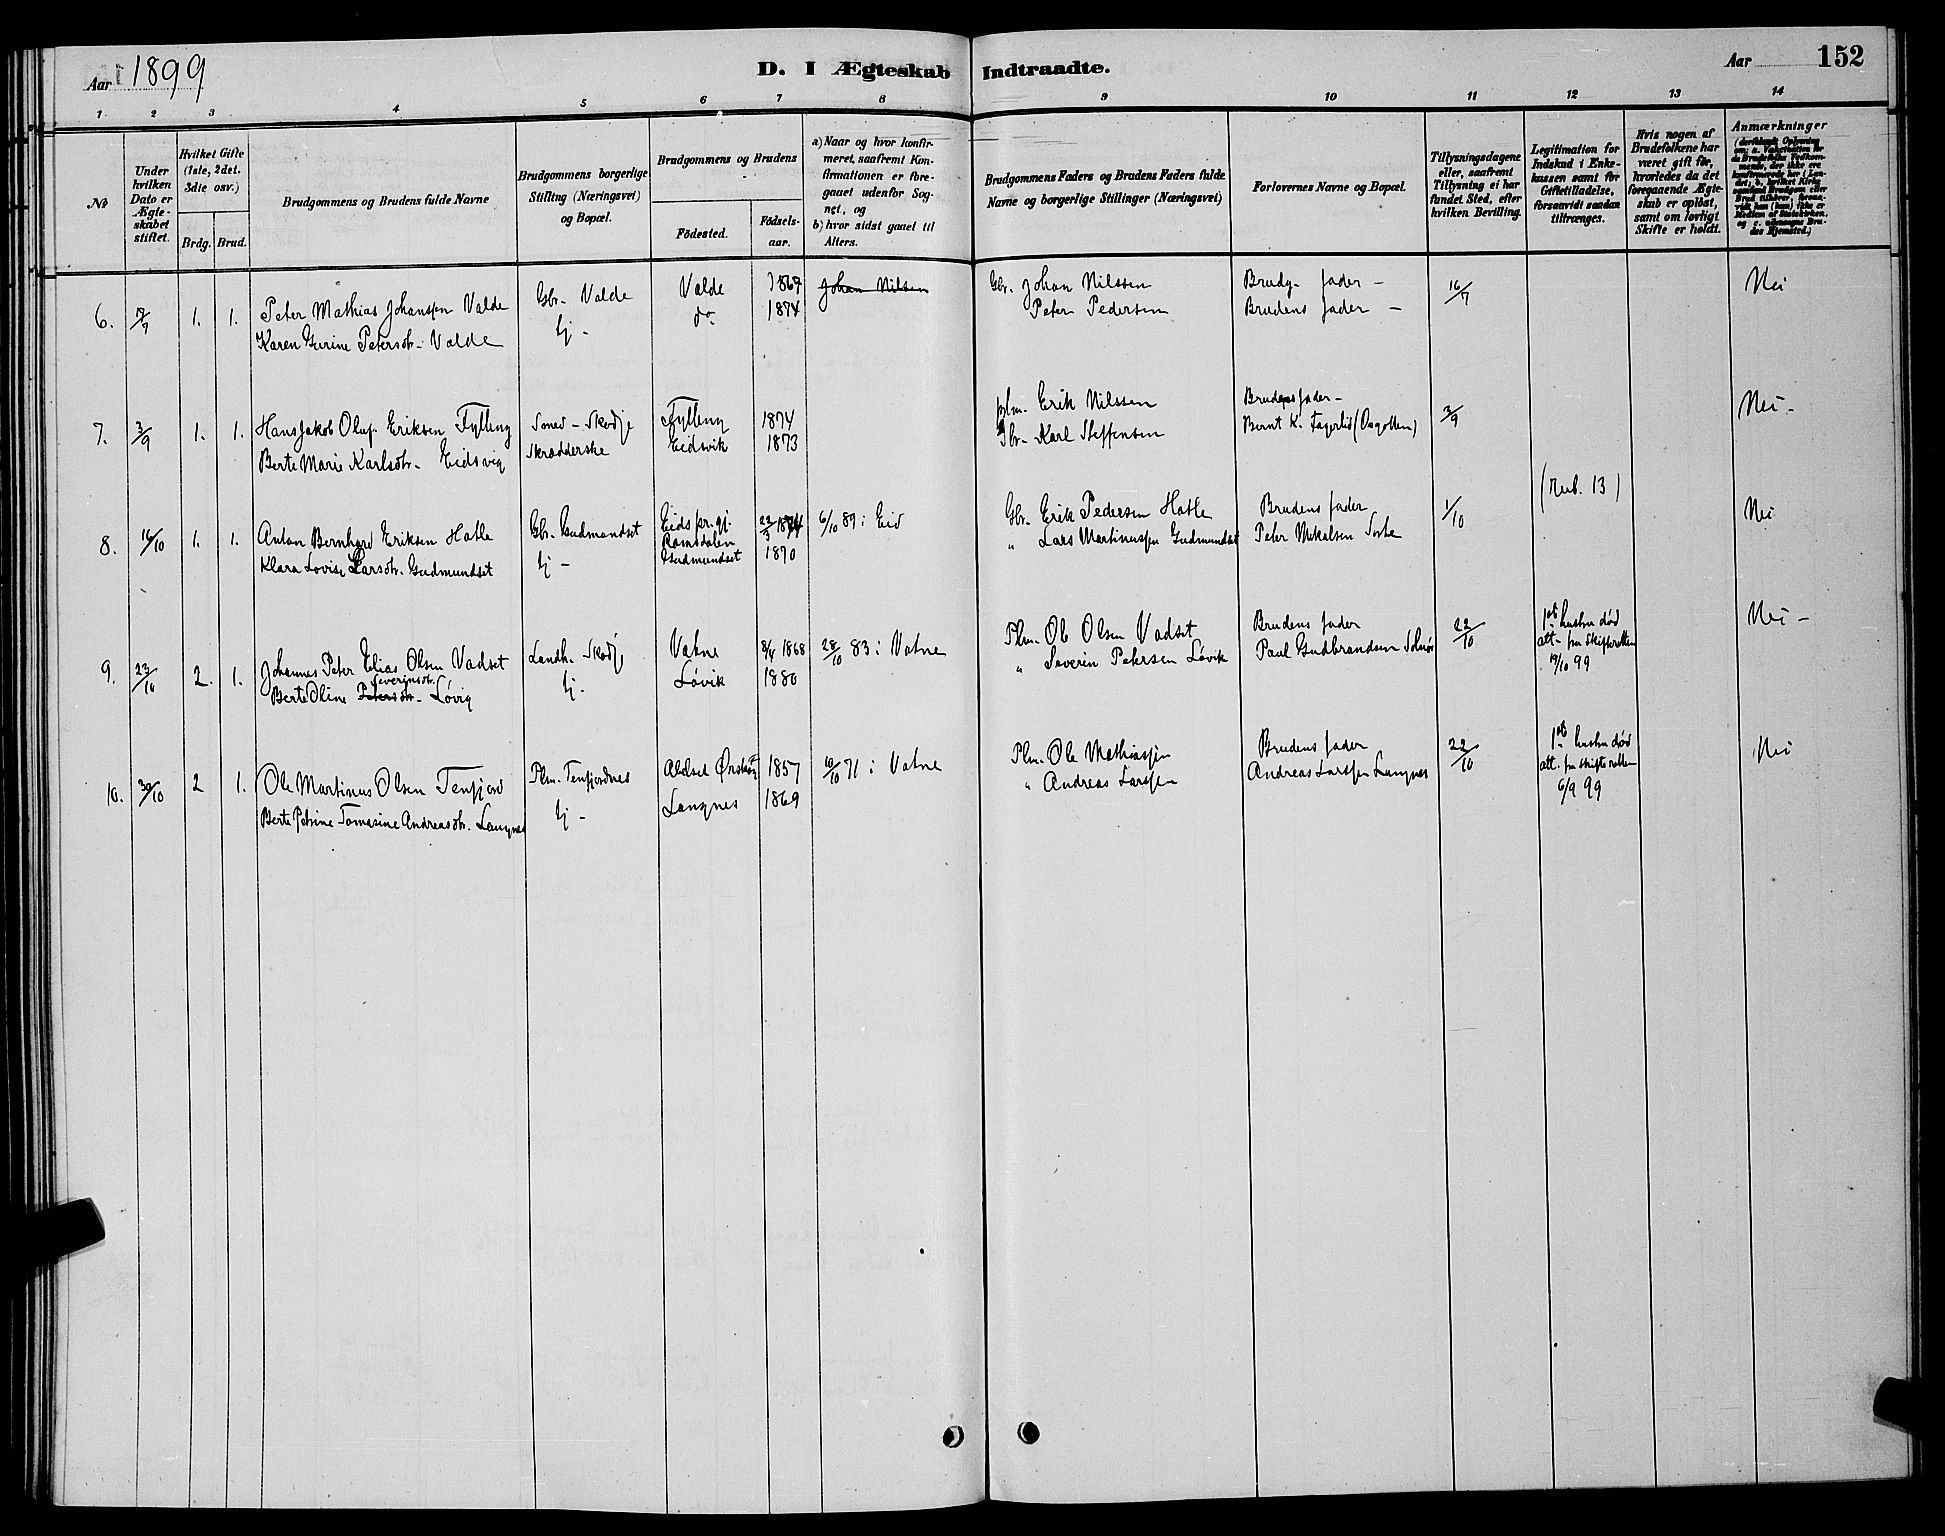 Aar 1899
D. I Ægteskab Indtraadte.
Aar 152
1 2 3 4 5 6 7 8 9 10 11 12 13 14
No
Under hvilken Dato er Ægteskabet stiftet.
Hvilket Gifte (1ste, 2det. 3die osv.)
Brdg. Brud.
Brudgommens og Brudens fulde Navne
Brudgommens borgerlige Stilling (Næringsvei) og Bopæl.
Brudgommens og Brudens
Födested. Födselsaar.
a) Naar og hvor konfirmeret, saafremt Konfirmationen er foregaaet udenfor Sognet, og
b) hvor sidst gaaet til Alters.
Brudgommens Faders og Brudens Faders fulde Navne og borgerlige Stillinger (Næringsvei)
Forlovernes Navne og Bopæl.
Tillysningsdagene eller, saafremt Tillysning ei har fundet Sted, efter hvilken Bevilling.
Legitimation for Indskud i Enkekassen samt for Giftetilladelse, forsaavidt saadan tiltrænges.
Hvis nogen af Brudefolkene har været gift för, hvorledes da det foregaaende Ægteskab er oplöst, samt om lovligt Skifte er holdt.
Anmærkninger
6. 17/7 1. 1. Peter Mathias Johanssen Valde Gbr. Valde Valde 1867 Johan Nilsen Gbr. Johan Nilssen Brudg. fader - 16/7 Nei
Karen Gurine Petersdtr. Valde Ej - do 1874 Peter Pedersen Brudens fader -
7. 3/9 1. 1. Hans Jakob Oluf Eriksen Fylling Smed - Skodje Fylling 1874 plm. Erik Nilssen Brudens fader - 3/9 Nei -
Berte Marie Karlsdtr. Eidsvig Skrædderske Eidsvik 1873 Gbr. Karl Steffensen Bernt K. Fagerlid
8. 16/10 1. 1. Anton Bernhard Eriksen Hatle Gbr. Gudmundset Eids pr.gj. Romsdalen 1874 6/10 89 i Eid Gbr. Erik Pedersen Hatle Brudens fader 1/10 (Rub. 13) Nei
Klara Lovise Larsdtr. Gudmundset Ej - Gudmundset 1870 " Lars Martinussen Gudmundset Peter Mikalsen
9. 23/10 2. 1. Johannes Peter Elias Olsen Vadset Landh. Skodje Vatne 8/4 1868 28/10 83 i Vatne Plm. Ole Olsen Vadset Brudens fader 22/10 1ste hustru död att. fra skifteretten 19/10 99 Nei -
Berte Oline Petersdtr. Severinsdtr. Lövig Ej. Lövik 1880 " Severin Petersen Lövik Paul Gudbrandsen Solnör
10. 30/10 2 1. Ole Martinus Olsen Tenfjord Plm. Tenfjordnes 1857 10/10 71 i Vatne Plm. Ole Mathiassen Brudens fader 22/10 1ste hustru död att. fra skifteretten 6/9 99 Nei
Berte Petrine Tomasine Andreasdtr. Langnes Ej - Langnes 1869 " Andreas Larssen Andreas Larssen Langnes